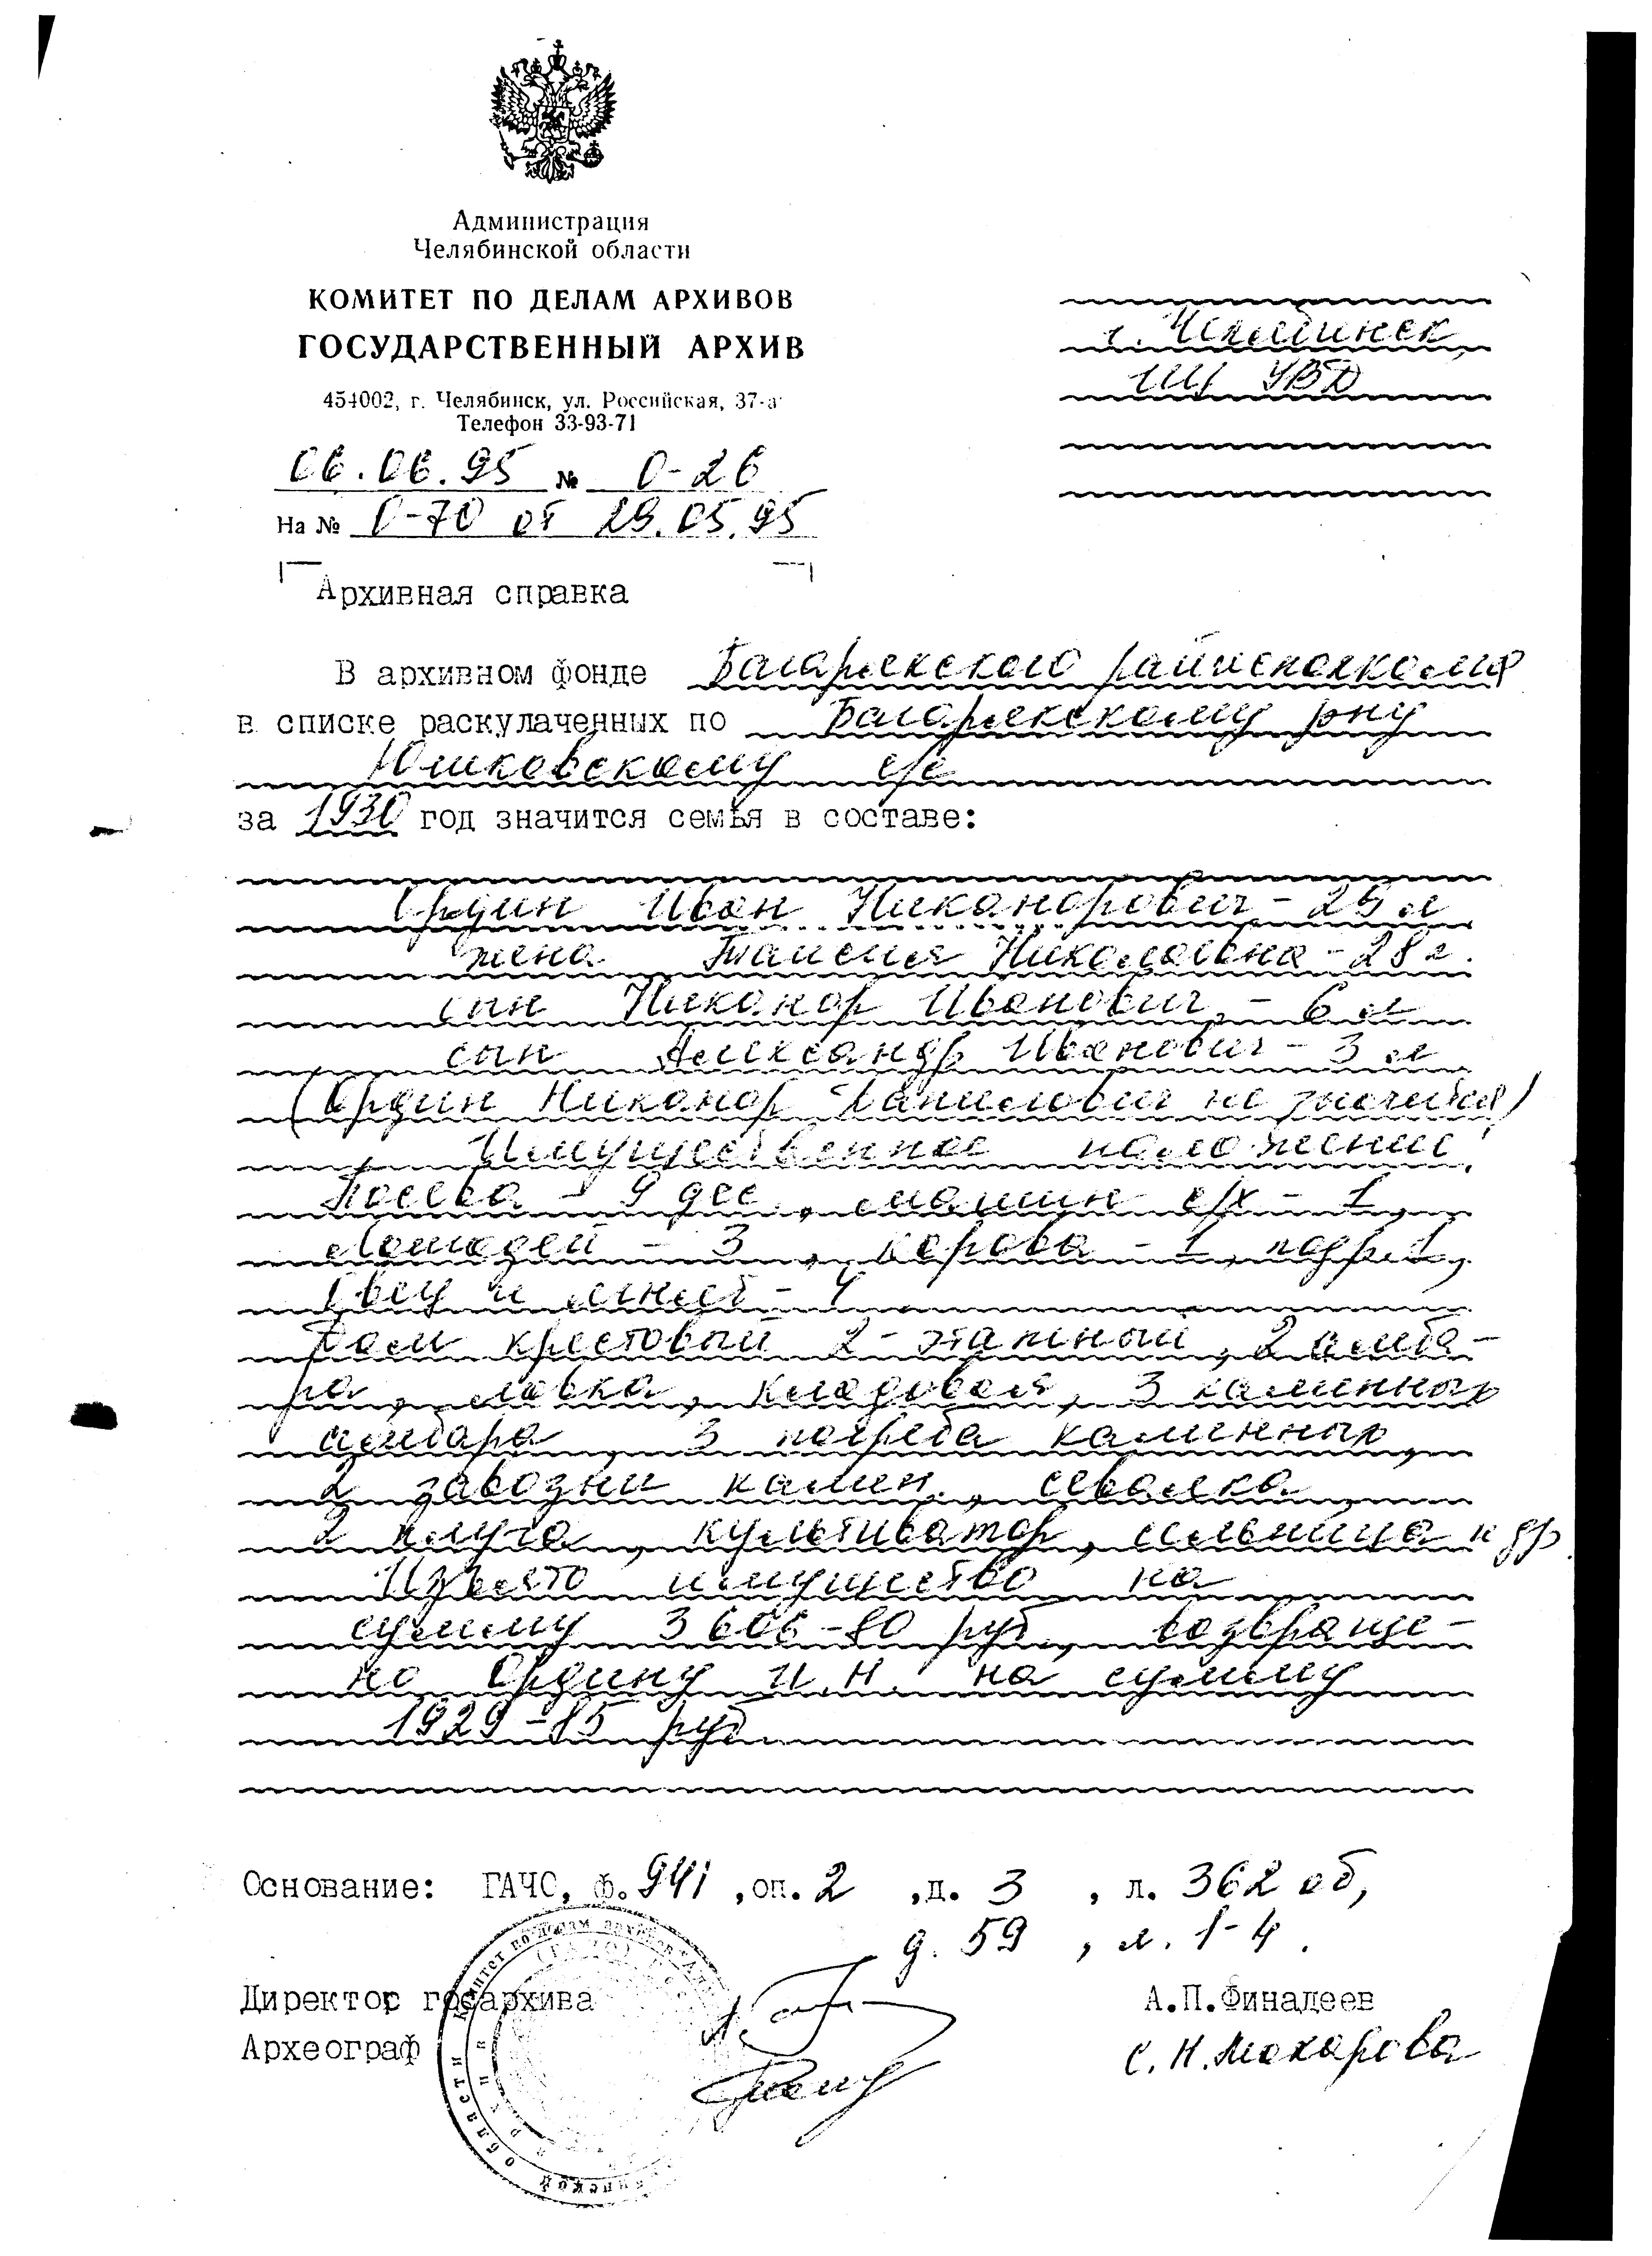 Администрация
Челябинской области
КОМИТЕТ ПО ДЕЛАМ АРХИВОВ
ГОСУДАРСТВЕННЫЙ АРХИВ
454002, г. Челябинск, ул. Российская, 37-а
Телефон 33-93-71
06.06.95 № О-26
На № О-70 от 29.05.95
г. Челябинск,
ИЦ УВД
Архивная справка
В архивном фонде Багарякского райисполкома
в списке раскулаченных по Багарякскому р-ну
Юшковскому с/с
за 1930 год значится семья в составе:
Ордин Иван Никанорович - 29 л
жена Таисия Николаевна - 28 л.
сын Никанор Иванович - 6 л
сын Александр Иванович - 3 л
(Ордин Никанор Данилович не значится)
Имущественное положение:
Посева - 9 дес., машин с/х - 1,
Лошадей - 3, корова - 1, подр. 1,
Овец и ягнят - 4
Дом крестовый 2-этажный, 2 амба-
ра, лавка, кладовая, 3 каменных
амбара, 3 погреба каменных,
2 завозни камен., сеялка,
2 плуга, культиватор, мельница и др.
Изъято имущество на
сумму 3606-80 руб., возвраще-
но Ордину И.Н. на сумму
1929-85 руб.
Основание: ГАЧО, ф. 941, оп. 2, д. 3, л. 362 об,
д. 59, л. 1-4.
Директор госархива А.П.Финадеев
Археограф С.Н. Макарова